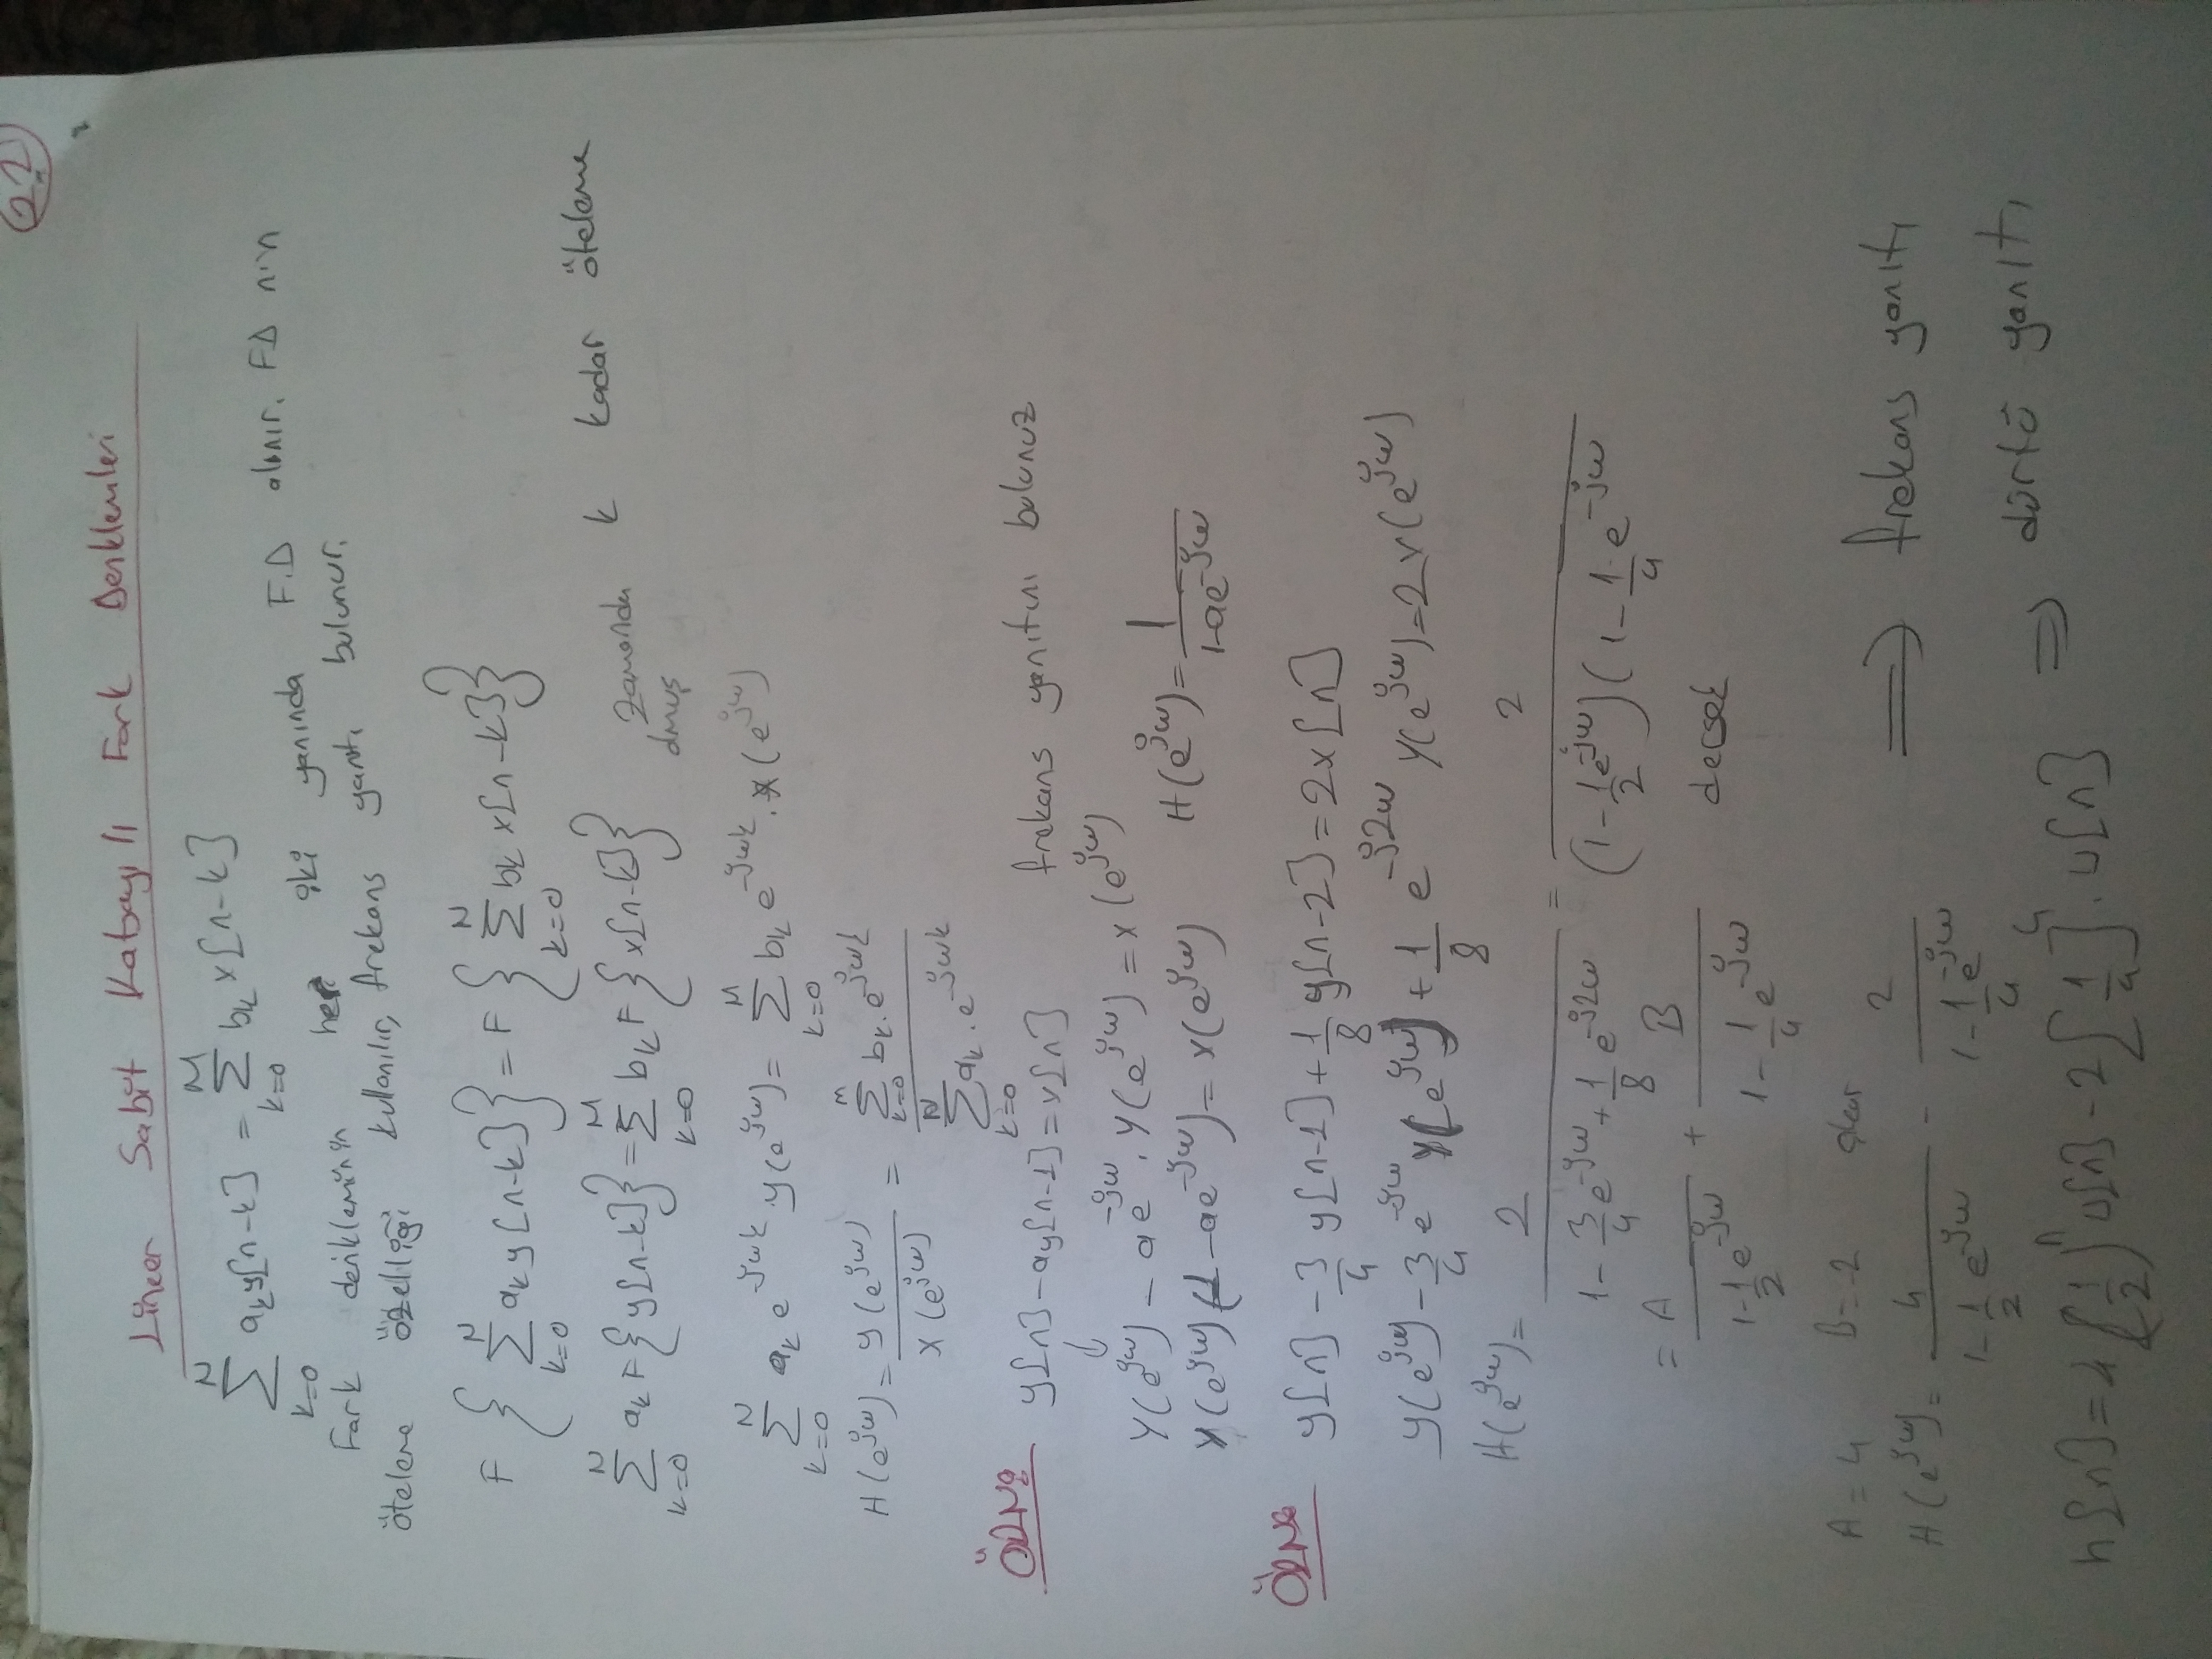 22
Lineer Sabit Katsayılı Fark Denklemleri
N Σ k=0 aₖ y[n-k] = M Σ k=0 bₖ x[n-k]
Fark denkleminin her iki yanında F.D alınır. FD nin
öteleme özelliği kullanılır, frekans yanıtı bulunur.
F { N Σ k=0 aₖ y[n-k] } = F { N Σ k=0 bₖ x[n-k] }
N Σ k=0 aₖ F{y[n-k]} = M Σ k=0 bₖ F{x[n-k]} zamanda k kadar öteleme
N Σ k=0 aₖ e^-jwk y(e^jw) = M Σ k=0 bₖ e^-jwk . x(e^jw)
H(e^jw) = y(e^jw) / x(e^jw) = M Σ k=0 bₖ . e^-jwk / N Σ k=0 aₖ . e^-jwk
ÖRN: y[n] - ay[n-1] = x[n] frekans yanıtını bulunuz
Y(e^jw) - ae^-jw . Y(e^jw) = x(e^jw)
Y(e^jw) (1 - ae^-jw) = x(e^jw) H(e^jw) = 1 / 1-ae^-jw
ÖRN: y[n] - 3/4 y[n-1] + 1/8 y[n-2] = 2x[n]
y(e^jw) - 3/4 e^-jw Y(e^jw) + 1/8 e^-j2w Y(e^jw) = 2 x(e^jw)
H(e^jw) = 2 / 1 - 3/4 e^-jw + 1/8 e^-j2w = 2 / (1 - 1/2 e^-jw) (1 - 1/4 e^-jw)
= A / 1 - 1/2 e^-jw + B / 1 - 1/4 e^-jw dersek
A = 4 B = -2 olur
H(e^jw) = 4 / 1 - 1/2 e^-jw - 2 / 1 - 1/4 e^-jw ⟹ frekans yanıtı
h[n] = 4 (1/2)^n u[n] - 2 [1/4]^n . u[n] ⇒ dürtü yanıtı